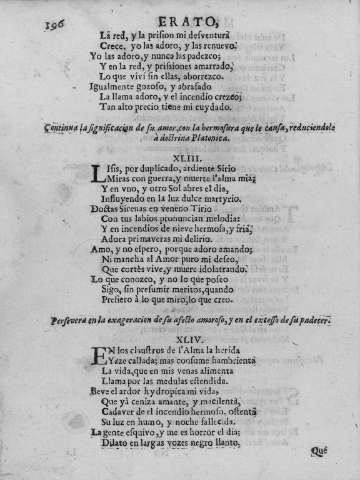 196
ERATO,
La red, y la prision mi desventura
Crece, yo las adoro, y las renuevo.
Yo las adoro, y nunca las padezco;
Y en la red, y prisiones amarrado,
Lo que viví sin ellas, aborrezco.
Igualmente gozoso, y abrasado
La llama adoro, y el incendio crezco;
Tan alto precio tiene mi cuydado.
Continua la significacion de su amor, con la hermosura que le causa, reduciendole
à doctrina Platonica.
XLIII.
LIsis, por duplicado, ardiente Sirio
Miras con guerra, y muerte l'alma mia;
Y en vno, y otro Sol abres el dia,
Influyendo en la luz dulce martyrio.
Doctas Sirenas en veneno Tirio
Con tus labios pronuncian melodia;
Y en incendios de nieve hermosa, y fria,
Adora primaveras mi delirio.
Amo, y no espero, porque adoro amando;
Ni mancha al Amor puro mi deseo,
Que cortès vive, y muere idolatrando.
Lo que conozco, y no lo que poseo
Sigo, sin presumir meritos, quando
Prefiero à lo que miro, lo que creo.
Persevera en la exageracion de su afecto amoroso, y en el excesso de su padecer.
XLIV.
EN los claustros de l'Alma la herida
Yaze callada; mas consume hambrienta
La vida, que en mis venas alimenta
Llama por las medulas estendida.
Beve el ardor hydropica mi vida;
Que yà ceniza amante, y macilenta,
Cadaver del incendio hermoso, ostenta
Su luz en humo, y noche fallecida.
La gente esquivo, y me es horror el dia;
Dilato en largas vozes negro llanto,
Què